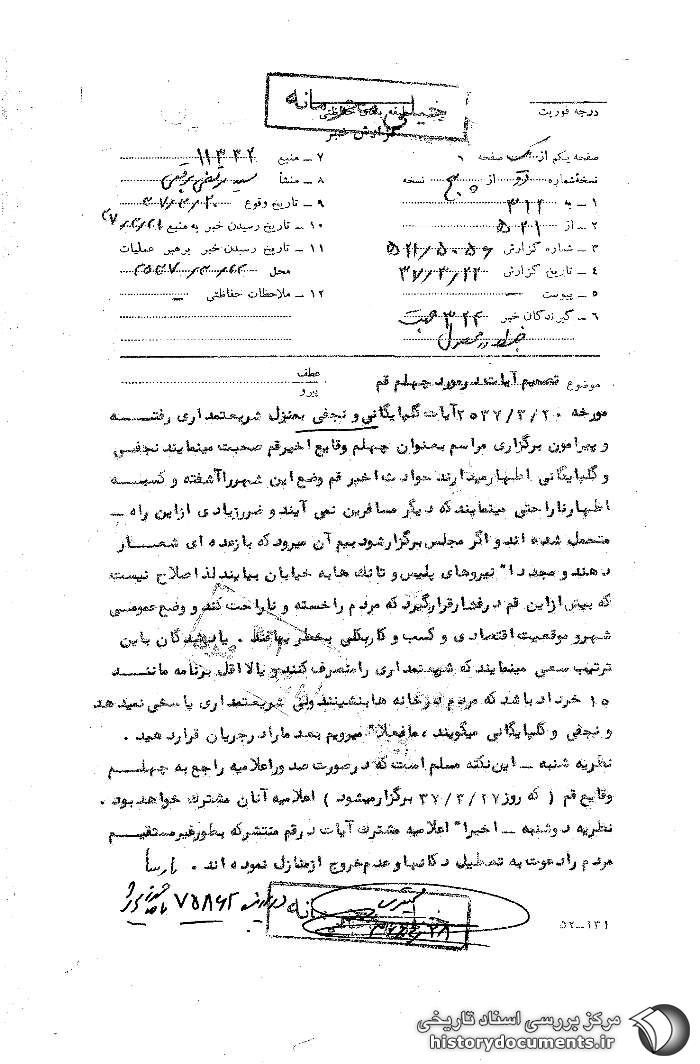 خیلی محرمانه
طبقه بندی حفاظتی
گزارش خبر
درجه فوریت
صفحه یکم از یک صفحه
نسخه شماره دو از پنج نسخه
۱ ـ به ۳۱۲
۲ ـ از ۵۲۱
۳ ـ شماره گزارش
۴ ـ تاریخ گزارش ۳۷/۳/۲۲
۵ ـ پیوست
۶ ـ گیرندگان خبر
۷ ـ منبع ۱۱۳۳۲
۸ ـ منشأ سید مرتضی برقعی
۹ ـ تاریخ وقوع ۳۷/۳/۲۰
۱۰ ـ تاریخ رسیدن خبر به منبع
۱۱ ـ تاریخ رسیدن خبر برهبر عملیات
محل
۱۲ ـ ملاحظات حفاظتی
موضوع تصمیم آیات در مورد چهلم قم
عطف
پیرو
مورخه ۲۵۳۷/۳/۲۰ آیات گلپایگانی و نجفی بمنزل شریعتمداری رفتــه
و پیرامون برگزاری مراسم بعنوان چهلم وقایع اخیر قم صحبت مینمایند نجفــی
و گلپایگانی اظهار میدارند حوادث اخیر قم وضع این شهر را آشفته و کسبــه
اظهار ناراحتی مینمایند که دیگر مسافرین نمی آیند و ضرر زیادی از این راه ـ
متحمل شده اند و اگر مجلس برگزار شود بیم آن میرود که باز عده ای شعــار
دهند و مجددا" نیروهای پلیس و تانک ها به خیابان بیایند لذا صلاح نیست
که بیش از این قم در فشار قرار گیرد که مردم را خسته و ناراحت کند و وضع عمومــی
شهر و موقعیت اقتصادی و کسب و کار بکلی بخطر بیافتد . یاد شدگان باین
ترتیب سعی مینمایند که شریعتمداری را منصرف کنند و یا لااقل برنامه ماننــد
۱۵ خرداد باشد که مردم در خانه ها بنشینند ولی شریعتمداری پاسخی نمیدهد
و نجفی و گلپایگانی میگویند ، ما فعلا" میرویم بعد ما را در جریان قرار دهید .
نظریه شنبه ـ این نکته مسلم است که در صورت صدور اعلامیه راجع به چهلــم
وقایع قم ( که روز ۳۷/۳/۲۷ برگزار میشود ) اعلامیه آنان مشترک خواهد بود .
نظریه دوشنبه ـ اخیرا" اعلامیه مشترک آیات در قم منتشر که بطور غیر مستقیــم
مردم را دعوت به تعطیل دکانها و عدم خروج از منازل نموده اند . پارسا
خیلی محرمانه
۵۲ـ۱۳۱
مرکز بررسی اسناد تاریخی
historydocuments.ir